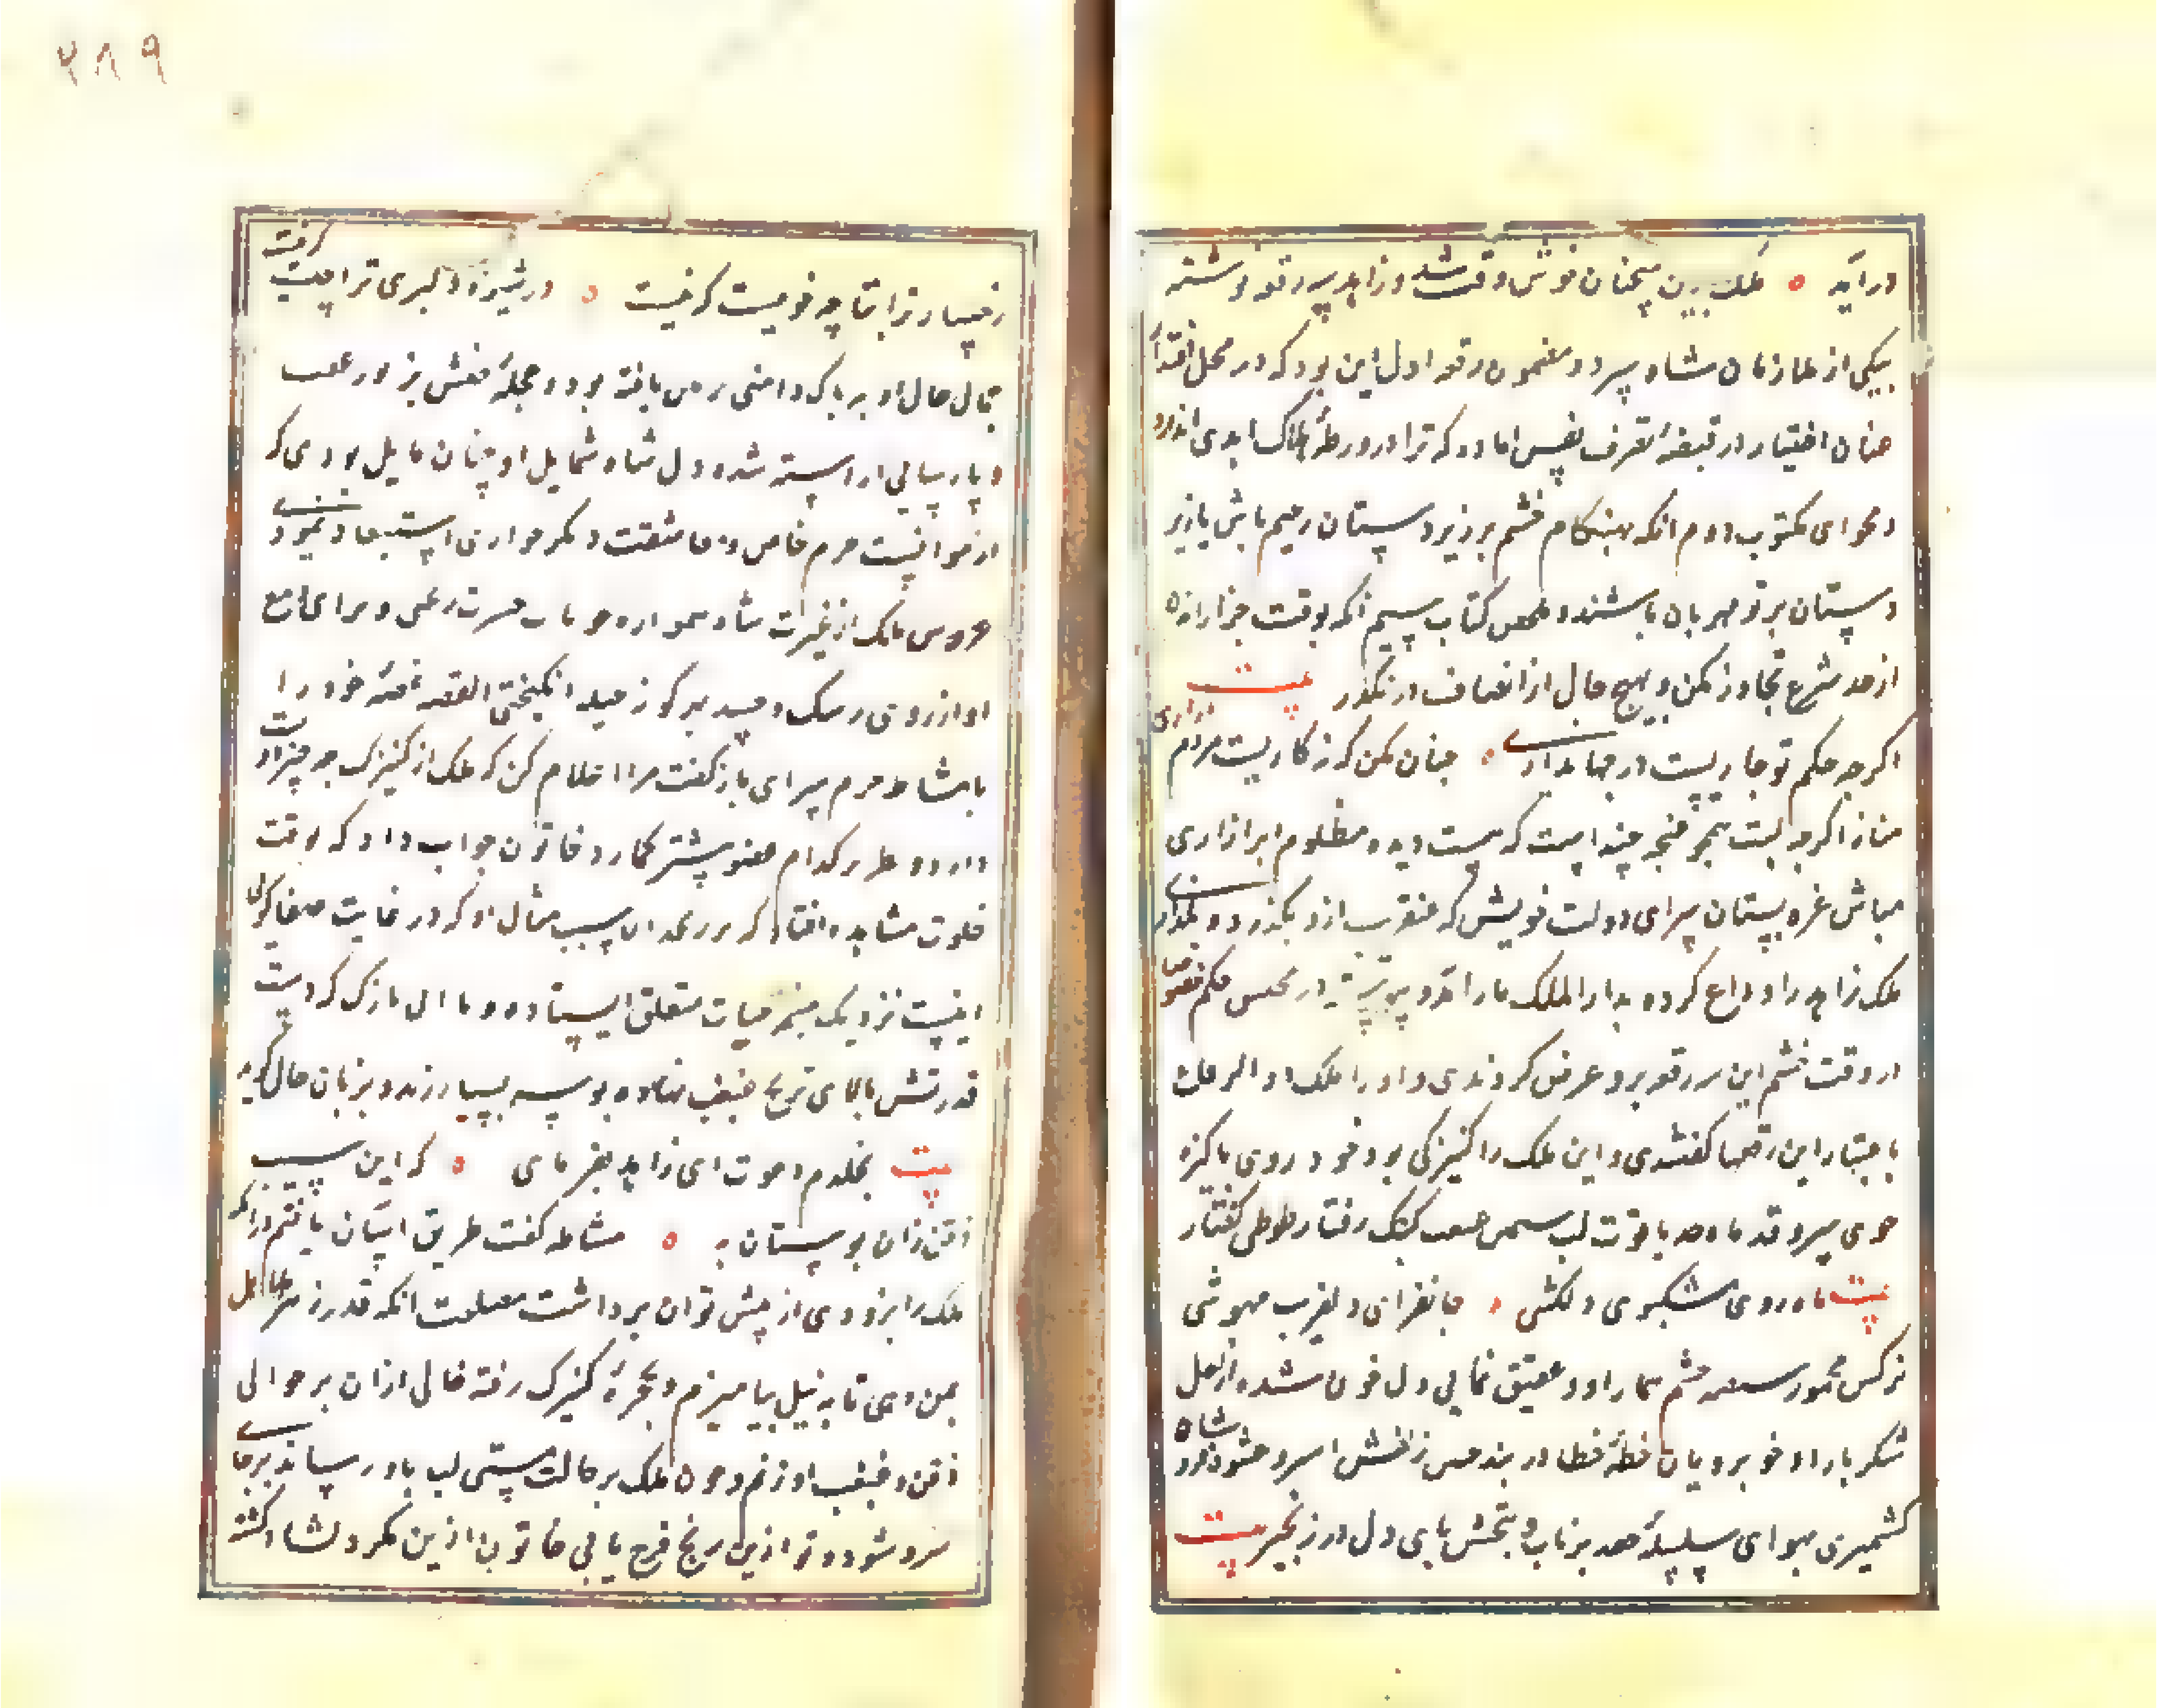 درآید ه ملک بدین سخنان خوش وقت شد و زاهد سه رقعه نوشته
بیکی از ملازمان شاه سپرد و مضمون رقعه اول این بود که در محل اقتدار
عنان اختیار در قبضهٔ تصرف نفس اماره مده که ترا در ورطهٔ هلاک ابدی اندازد
و فحوای مکتوب دوم انکه بهنکام خشم بر زیر دستان رحیم باش تا زبر
دستان بر تو مهربان باشند و ملخص کتاب سیم انکه بوقت جزا از اندازه
از حد شرع تجاوز مکن و بهیچ حال از انصاف در نکذر بیت
اکرچه حکم تو جاریست در جهانداری ه چنان مکن که ز کاریست مردم آزاری
مناز اکرچه لبت همچو غنچه خنداست که هست دیده مظلوم ابر آزاری
مباش غره ببستان سرای دولت خویش که عنقریب ازو بکذری و بکذاری
ملک زاهد را وداع کرده بدار الملک باز آمد و پیوسته در مجلس حکم خصوصا
در وقت خشم این سه رقعه برو عرض کردندی و او را ملک دو الرقاع
باعتبار این رقعها کفتندی و این ملک را کنیزکی بود خورد روی پاکیزه
خوی سرو قد ماه خد یاقوت لب سیمین غبغب کبک رفتار طوطی کفتار
بیت ماه روی مشکبوی دلکشی ه جانفزای دلفریب مهوشی
نرکس مخمور شیفته چشم بیمار او و عقیق یمانی دل خون شده از لعل
شکر بار او خوبرویان خطهٔ خطا در بند چین زلفش اسیر و خسرو شاه
کشمیری بهوای سلسلهٔ جعد پرتاب و پیچش پای دل در زنجیر بیت
رخسار ترا بتا چه خوبیست که نیست ه در شیوهٔ دلبری ترا چیست که نیست
جمال حال او بر پاک دامنی زین یافته بود و حجلهٔ حسنش بزیور عفت
و پارسایی آراسته شده دل شاه شمایل او چنان مایل بودی که
از موانست حرم خاص و معاشقت دیکر جواری استبعاد نمودی
عروس ملک از غیرت شاه همواره خوناب حسرت ریختی و برای دفع
او از روی رشک و حسد هر کونه حیله انکیختی القصه غصهٔ خود را
با مشاطه حرم سرای باز کفت مرا اعلام کن که ملک از کنیزک چه چیز دوست
دارد و نظر بر کدام عضو بیشتر کمارد خاتون جواب داد که بوقت
خلوت مشاهده افتاد که بر زنخدان سیب مثال او که در غایت صفا کویی
آبیست نزدیک چشمه حیات معلق ایستاده و یا آبی نازک که دست
قدرتش بالای ترنج غبغب نهاده بوسه بسیار زند و بزبان حال کوید
بیت بخلدم دعوت ای زاهد مفرمای ه که این سیب
ذقن زان بوستان به ه مشاطه کفت طریق آسان یافتم در آنکه
ملک را بزودی از پیش توان برداشت مصلحت انکه قدری زهر هلاهل
بمن دهی تا به نیل بیامیزم و بحجرهٔ کنیزک رفته خالی ازان بر حوالی
ذقن و غبغب او زنم و چون ملک بر حالت مستی لب بدو رساند بر جای
سرد شود و تو ازین رنج فرج یابی خاتون ازین مکر دلشاد کشته
۲۸۹